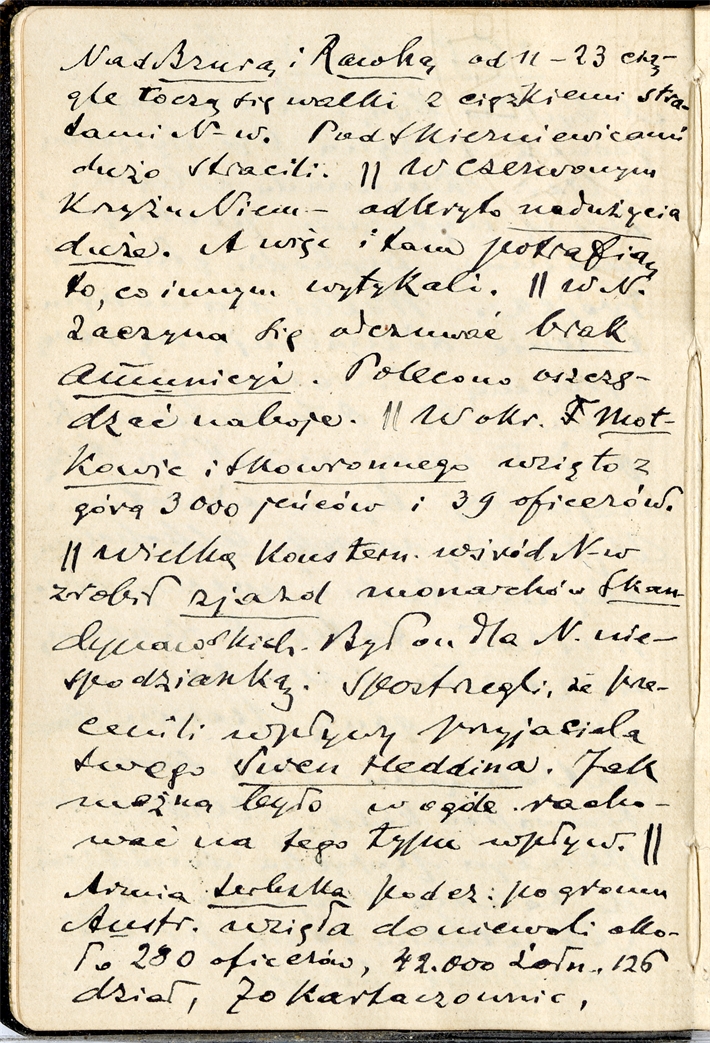 Nad Bzurą i Rawką od 11–23 cią-
gle toczą się walki z ciężkiemi stra-
tami N-w. Pod Skierniewicami
dużo stracili. || W czerwonym
Krzyżu Niem– odkryto nadużycia
duże. A więc i tam potrafią
to, co innym wytykali. || W N.
zaczyna się odczuwać brak
amunicyi. Polecono oszczę-
dzać naboje. || W okr. Mot-
kowic i Skowronnego wzięto z
górą 3000 jeńców i 39 oficerów.
|| Wielką konstern. wśród N-w
zrobił zjazd monarchów Skan-
dynawskich. Był on dla N. nie-
spodzianką. Spostrzegli, że prze-
cenili wpływy przyjaciela
swego Swen Heddina. Jak
można było wogóle racho-
wać na tego typu wpływ. ||
Armia serbska podcz: pogromu
Austr. wzięła do niewoli oko-
ło 280 oficerów, 42.000 żołn., 126
dział, 70 kartaczownic,